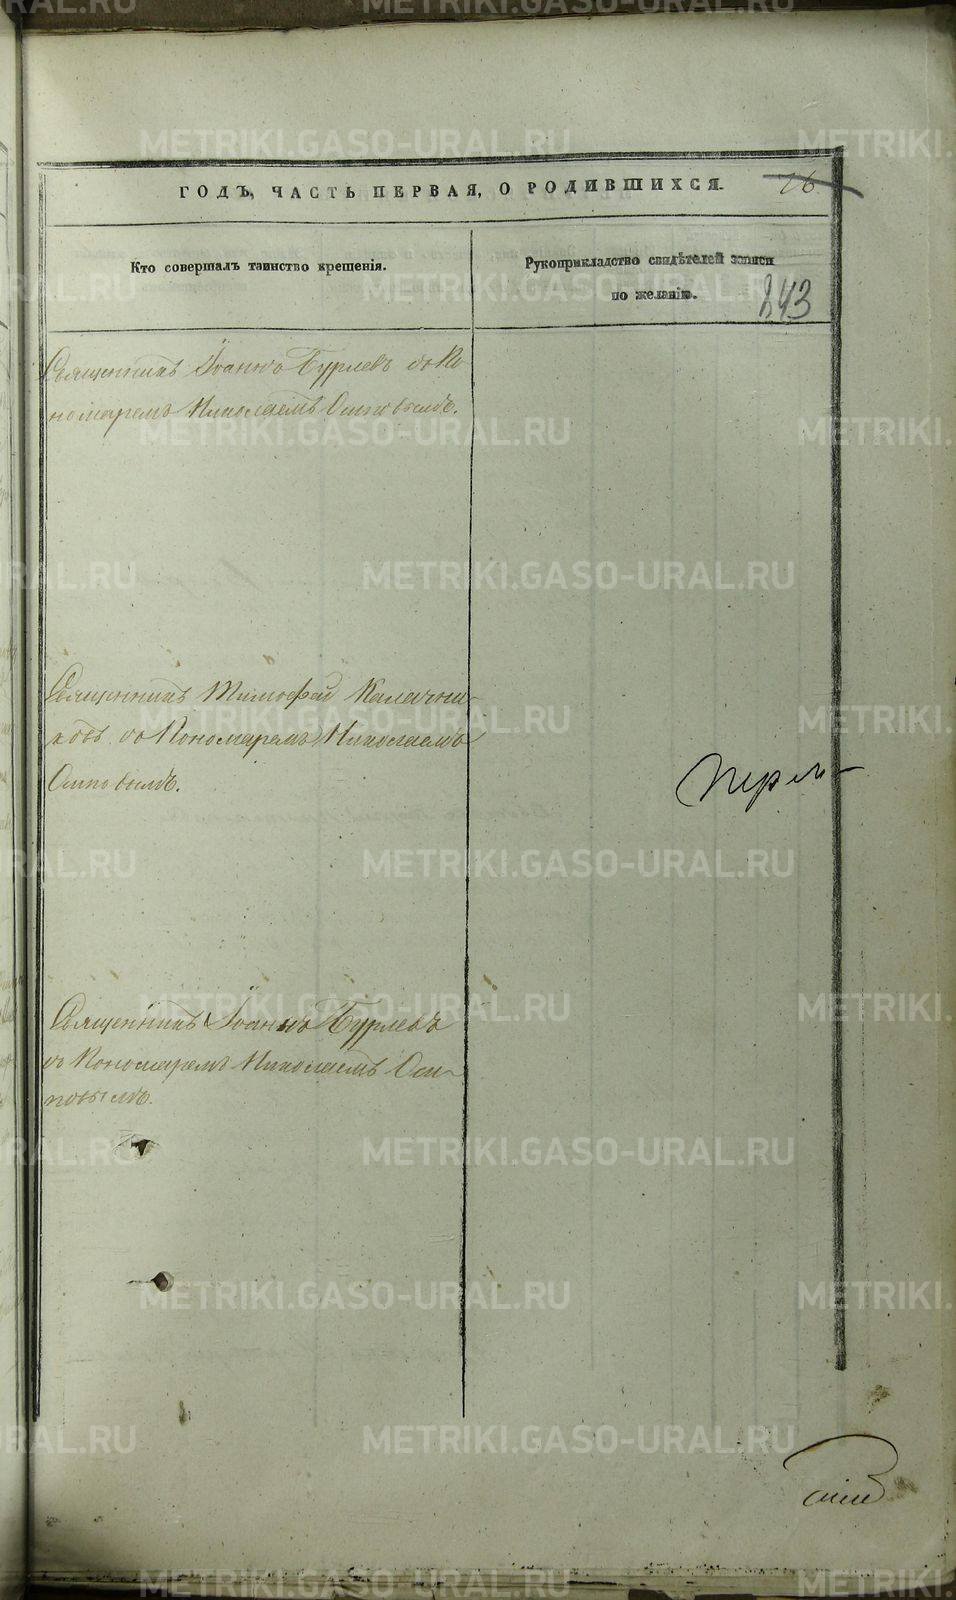 ГОДЪ, ЧАСТЬ ПЕРВАЯ, О РОДИВШИХСЯ.
26
Кто совершалъ таинство крещенія.
Рукоприкладство свидѣтелей записи
по желанію.
243
Священникъ Іоаннъ Бурлевъ съ По
номаремъ Николаемъ Осиповымъ.
Священникъ Тимофей Калачни-
ковъ съ Пономаремъ Николаемъ
Осиповымъ.
Священникъ Іоаннъ Бурлевъ
съ Пономаремъ Николаемъ Оси-
повымъ.
METRIKI.GASO-URAL.RU